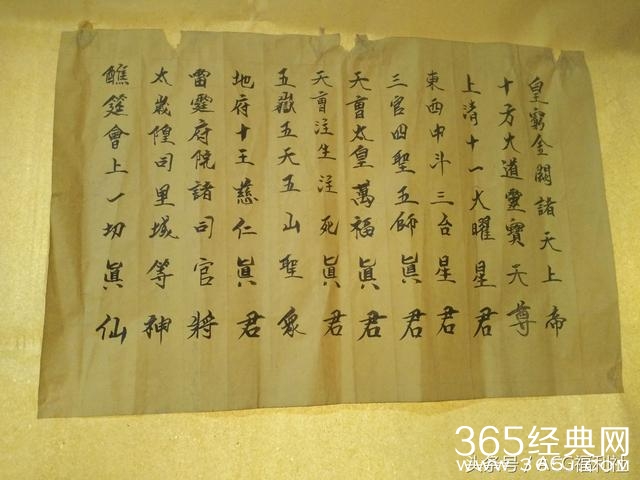 皇窮金闕諸天上帝
十方大道靈寶天尊
上清十一大曜星君
東西中斗三台星君
三官四聖五師眞君
天曹太皇萬福眞君
天曹注生注死眞君
五嶽五天五山聖衆
地府十王慈仁眞君
雷霆府院諸司官將
太歲隍司里域等神
醮筵會上一切眞仙
365经典网
头条号 / ACG福利社